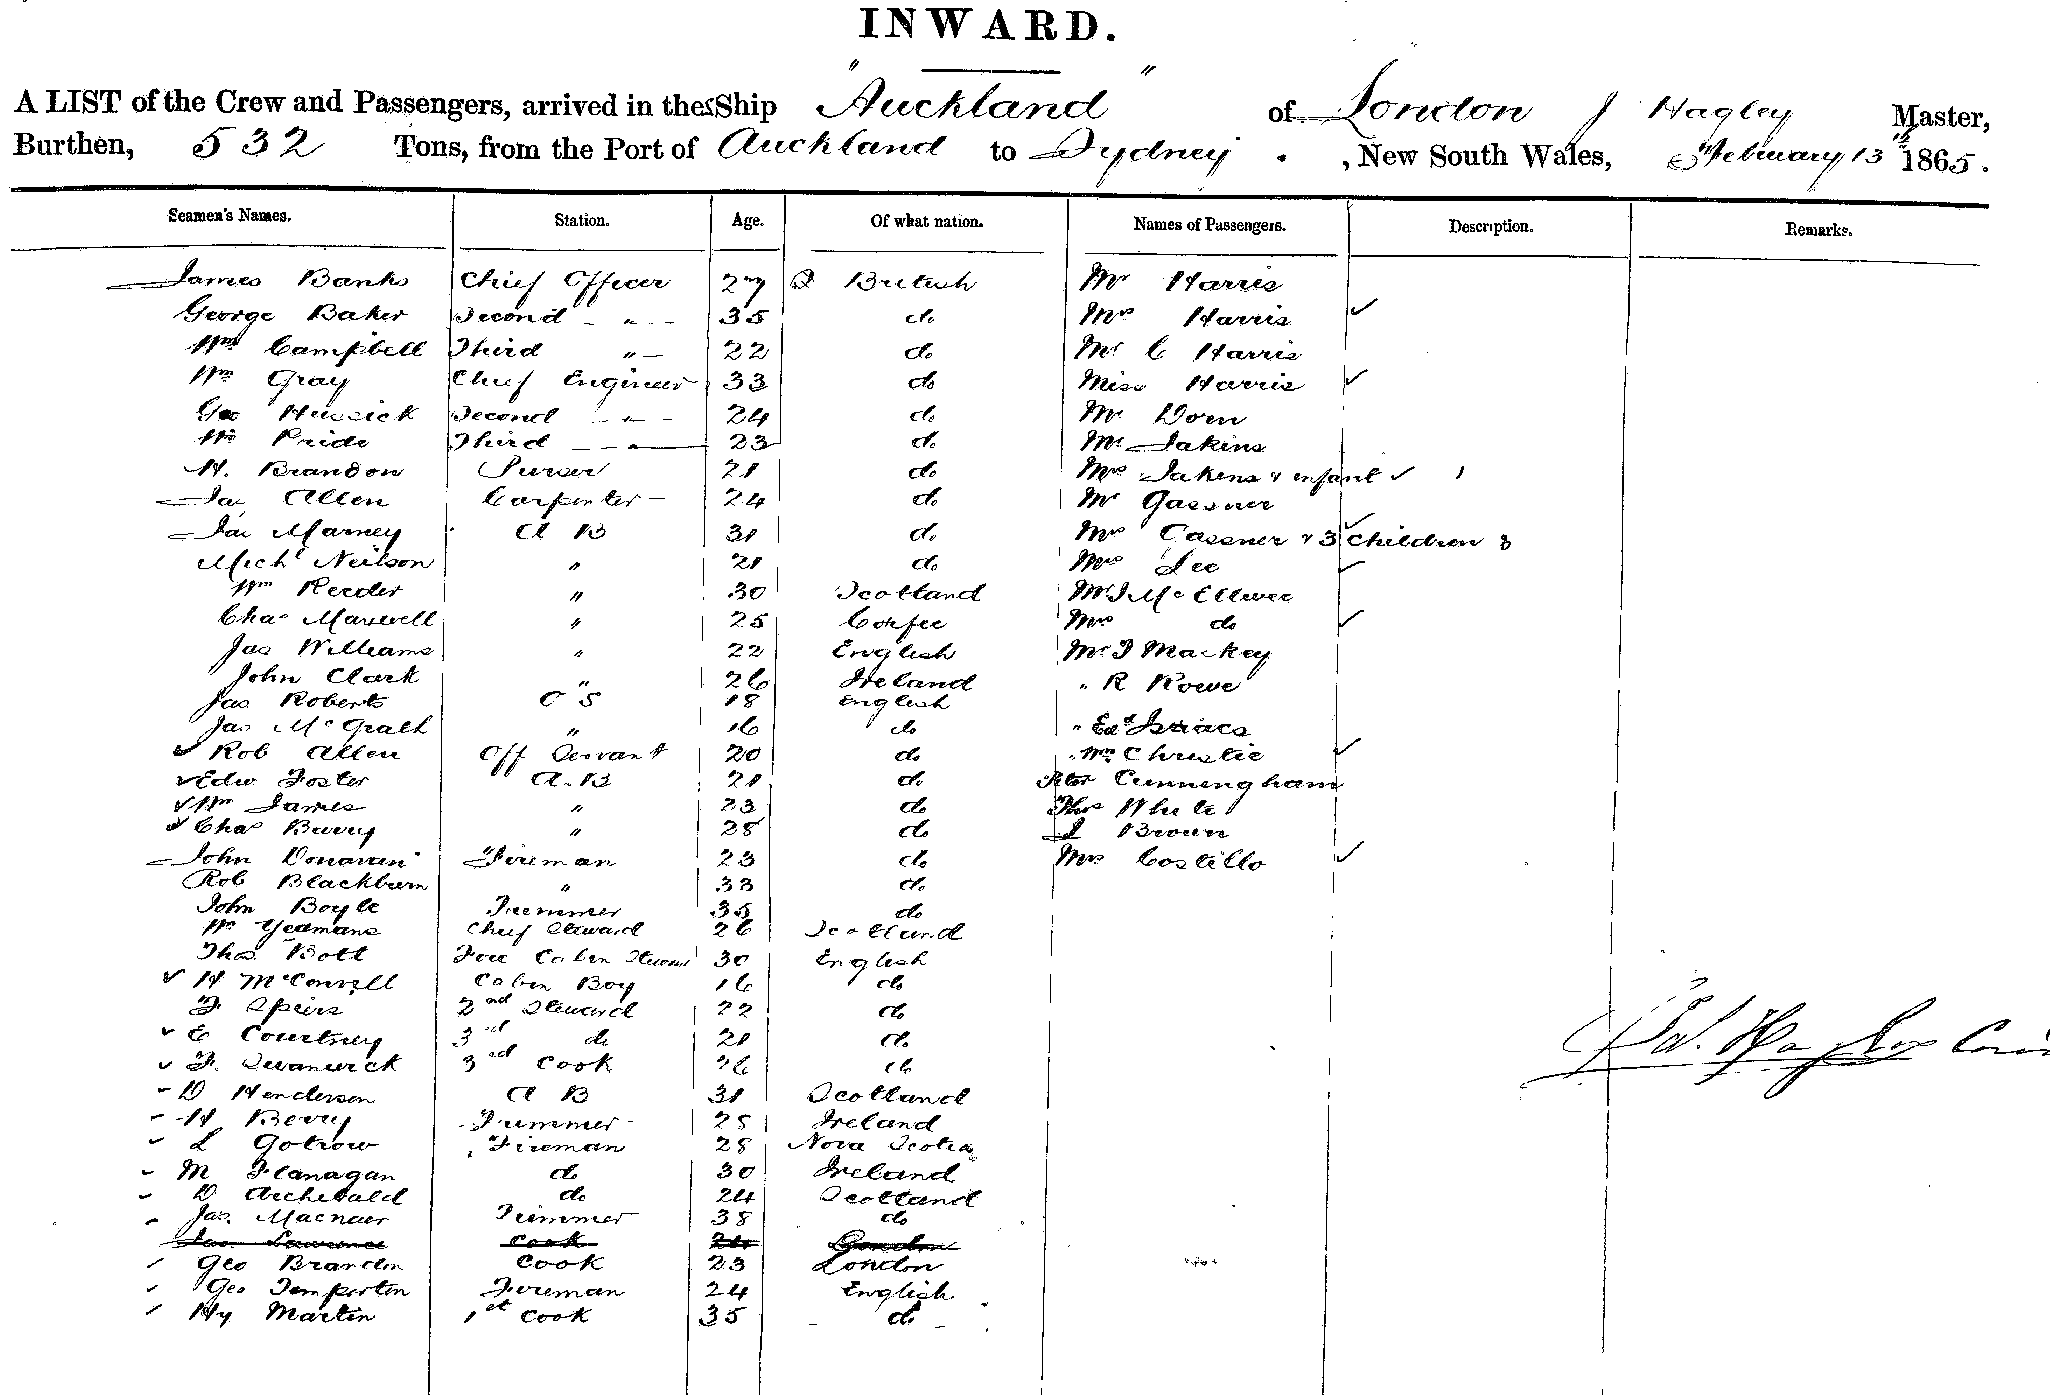 INWARD.
A LIST of the Crew and Passengers, arrived in the SShip "Auckland" of London J Hagley Master,
Burthen, 532 Tons, from the Port of Auckland to Sydney, New South Wales, February 13th 1865.
Seamen's Names. Station. Age. Of what nation. Names of Passengers. Description. Remarks.
James Banks Chief Officer 27 British Mr Harris
George Baker Second " 35 do Mrs Harris ✓
Wm Campbell Third " 22 do Mr C Harris
Wm Gray Chief Engineer 33 do Miss Harris ✓
Geo Hussick Second " 24 do Mr Dorn
Wm Pride Third " 23 do Mr Jakins
H. Brandon Purser 21 do Mrs Jakins & infant ✓ 1
Jas Allen Carpenter 24 do Mr Gassner
Jas Marney A B 31 do Mrs Gassner & 3 children ✓ 3
Michl Neilson " 21 do Mrs Lee ✓
Wm Reeder " 30 Scotland Mr J McEllwee
Chas Maxwell " 25 Corfee Mrs do ✓
Jas Williams " 22 English Mr J Mackey
John Clark " 26 Ireland " R Rowe
Jas Roberts O S 18 English
Jas McGrath " 16 do " Ed Isaacs
✓ Rob Allen Off Servant 20 do Mrs Christie ✓
✓ Edw Foster A.B 21 do Peter Cunningham
✓ Wm James " 23 do Thos White
✓ Chas Burry " 28 do J Brown
John Donavan Fireman 23 do Mrs Costillo ✓
Rob Blackburn " 33 do
John Boyle Trimmer 35 do
Wm Yeamans Chief Steward 26 Scotland
Thos Bott Fore Cabin Steward 30 English
✓ H McConnell Cabin Boy 16 do
F Speirs 2nd Steward 22 do
✓ E Courtney 3rd do 21 do
✓ F. Swanwick 3rd Cook 26 do
D Henderson A B 31 Scotland
H Berry Trimmer 25 Ireland
L Gotrow Fireman 28 Nova Scotia
M Flanagan do 30 Ireland
D Archibald do 24 Scotland
Jas. Macnair Trimmer 38 do
Jas Lawrence Cook 24 London
Geo Brandon Cook 23 London
Geo Temperton Fireman 24 English
Hy Martin 1st Cook 35 do